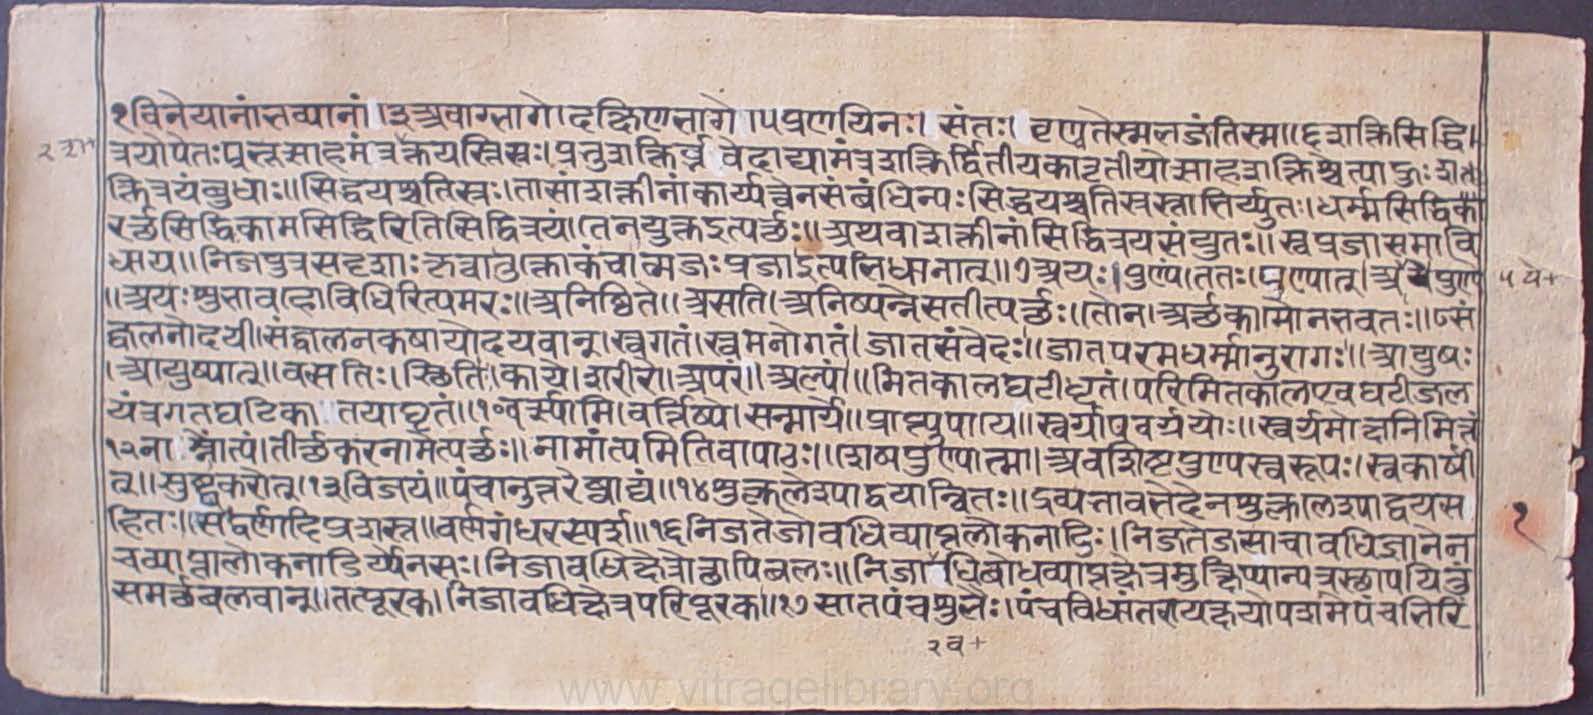 १विनेयानांभव्यानां।३अवाग्भागे।दक्षिणभागे।५प्रणयिनः। संतः। वृण्वतेस्मभजंतिस्म॥६शक्तिसिद्धि।
२ शा+
त्रयोपेतःप्रभूत्साहमंत्रशक्तयस्तिस्रः।प्रभुशक्ति वेदाद्यामंत्रशक्तिर्द्वितीयकातृतीयोत्साहशक्तिश्चेत्याहुःश
क्तित्रयंबुधाः॥सिद्धयश्चतिस्रः।तासांशक्तीनांकार्य्यत्वेनसंबंधिन्यःसिद्धयश्चतिस्रस्ताभिर्य्युतः।धर्म्मसिद्धिका
रर्च्छसिद्धिकामसिद्धिरितिसिद्धित्रयं।तेनयुक्तइत्यर्च्छः॥अथवाशक्तीनांसिद्धित्रयसंयुतः॥स्वप्रजासमावि
धाय॥निजपुत्रसदृशाः आत्मजःप्रजाइत्यभिधानात्॥७अयः।पुण्यं।ततः।पुण्यात्।
५ ये+
॥अयःशुभावहोविधिरित्यमरः॥अनिष्ठिते॥असति।अनिष्पन्नेसतीत्यर्च्छः॥तेन।अर्च्छकामोनभवतः॥८सं
ज्वलनोदयी।संज्वलनकषायोदयवान्।स्वगतं।स्वमनोगतं।जातसंवेदः॥जातपरमधर्म्मानुरागः॥आयुषः
।आयुष्यात्॥वसतिः।स्थितिः।काये।शरीरे॥अपरं॥अल्पं॥मितकालघटीधृतं।परिमितकालएवघटीजल
यंत्रगतघटिका तयाधृतं॥१०वर्त्स्यामि।वर्त्तिष्ये।सन्मार्गे॥प्राप्त्युपाये॥स्वर्गापवर्गयोः॥स्वर्गमोक्षनिमित्तं
१२ना त्यं।तीर्च्छकरनामेत्यर्च्छः॥नामांत्यमितिवापाठः॥शेषपुण्यात्मा।अवशिष्टपुण्यस्वरूपः।स्वकार्षी
त्॥सुष्ठुकरोत्।१३विजयं॥पंचानुत्तरेष्वाद्यं॥१४शुक्ललेश्याद्वयान्वितः॥द्रव्यभावभेदेनशुक्ललेश्याद्वयस
हितः॥सद्वर्णादिप्रशस्त॥वर्णगंधरसस्पर्श॥१६निजतेजोवधिव्याप्तलोकनाडिः।निजतेजसाचावधिज्ञानेन
१
चव्याप्तालोकनाडिर्य्येनसः।निजावधिक्षेत्रोत्थापिबलः॥निजा धिबोधव्याप्तक्षेत्रमुत्क्षिप्यान्यत्रस्थापयितुं
समर्च्छबलवान्॥तत्पूरक।निजावधिक्षेत्रपरिपूरक॥१७सातपंचशुभैः।पंचविधांतरायक्षयोपशमेपंचभिरि
२व+
www.vitragelibrary.org